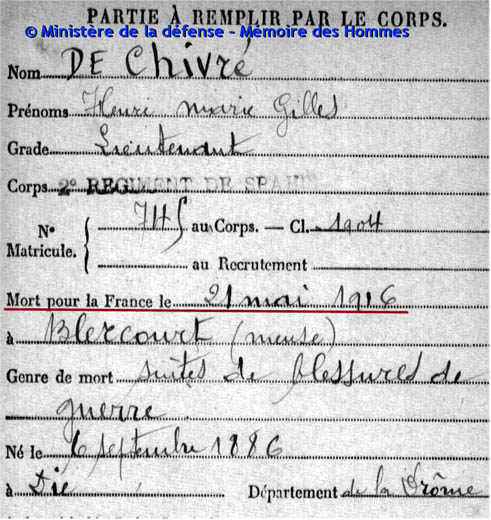 PARTIE À REMPLIR PAR LE CORPS.
© Ministère de la défense - Mémoire des Hommes
Nom DE Chivré
Prénoms Henri marie Gilles
Grade Lieutenant
Corps 2e REGIMENT DE SPAHIS
No Matricule. 745 au Corps. — Cl. 1904
au Recrutement
Mort pour la France le 21 mai 1916
à Blercourt (meuse)
Genre de mort suites de blessures de
guerre
Né le 6 septembre 1886
à Die Département de la Drôme